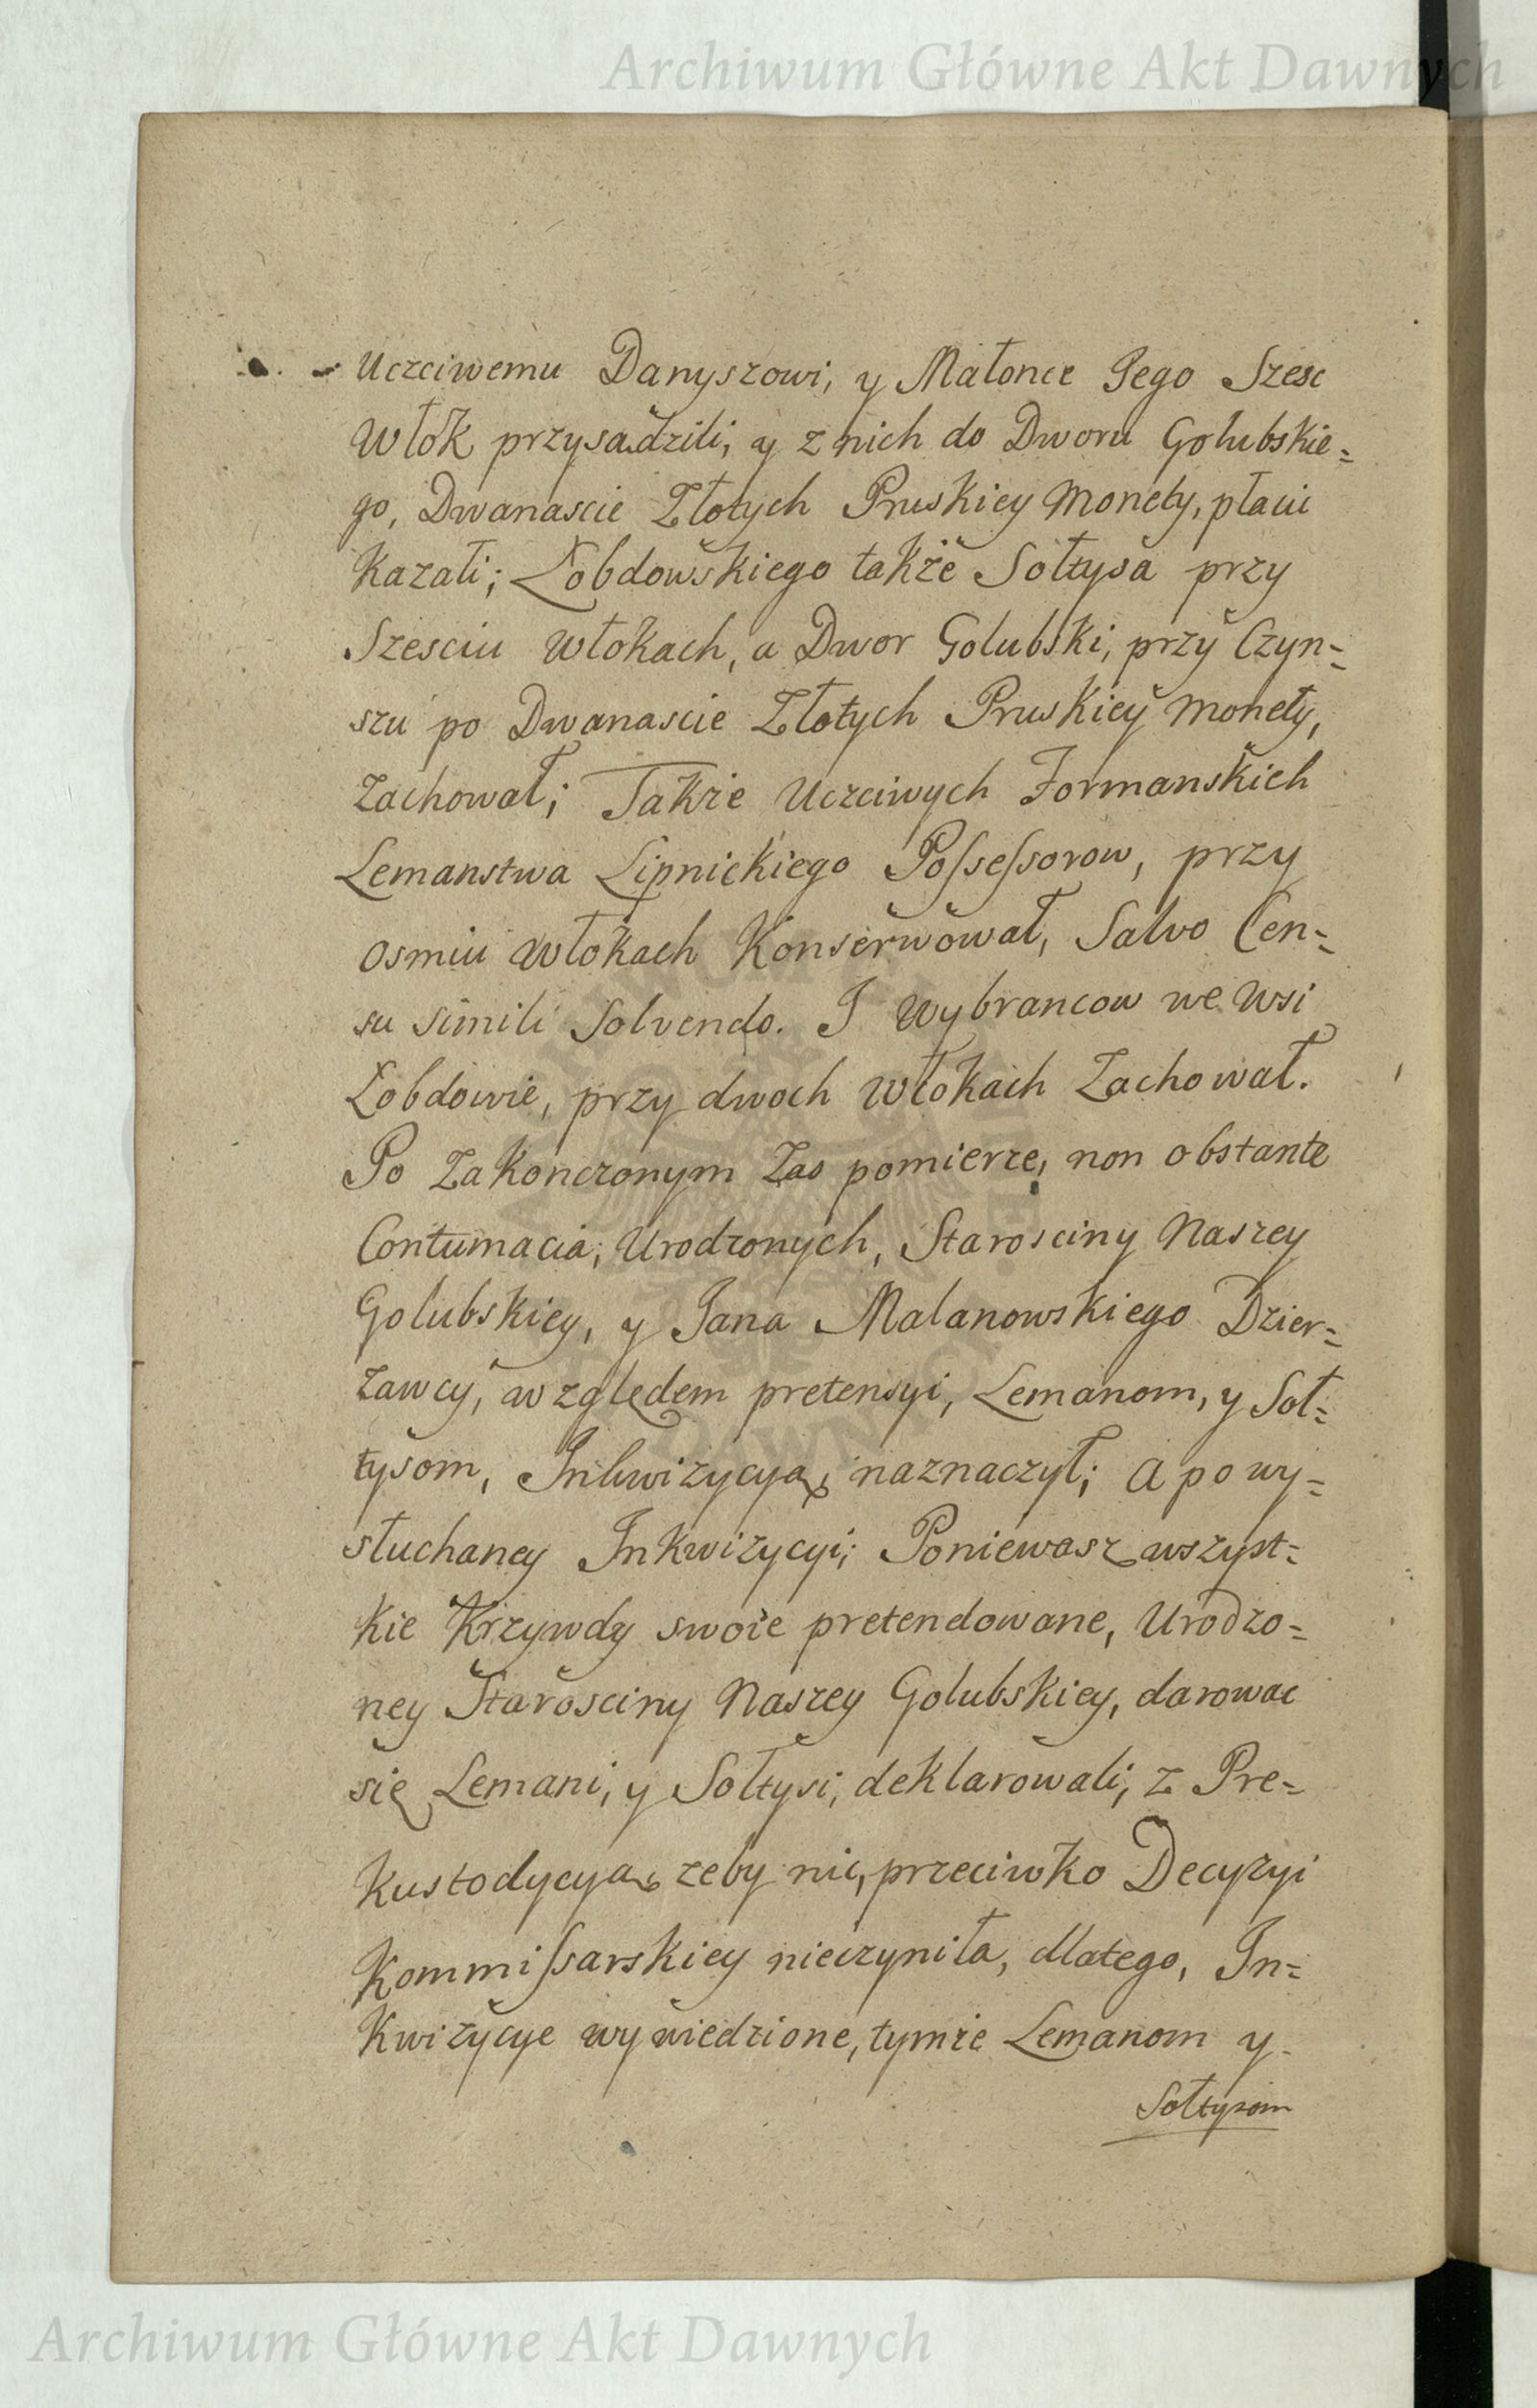 Archiwum Główne Akt Dawnych
Uczciwemu Danyszowi, y Małonce Jego Szesc
Włok przysadzili, y z nich do Dworu Golubskie=
go, Dwanascie Złotych Pruskiey Monety, płacic
Kazali; Łobdowskiego także Sołtysa przy
Szesciu Włokach, a Dwor Golubski, przy Czyn=
szu po Dwanascie Złotych Pruskiey Monety,
Zachował; Takze Uczciwych Formanskich
Lemanstwa Lipnickiego Possessorow, przy
Osmiu Włokach Konserwował, Salvo Cen=
su simili Solvendo. I Wybrancow we Wsi
Łobdowie, przy dwoch Włokach Zachował.
Po Zakonczonym Zas pomierze, non obstante
Contumacia, Urodzonych, Starosciny Naszey
Golubskiey, y Jana Malanowskiego Dzier=
żawcy, względem pretensyi, Lemanom, y Soł=
tysom, Inkwizycyą naznaczył; A po wy=
słuchaney Inkwizycyi; Poniewasz wszyst=
kie Krzywdy swoie pretendowane, Urodzo=
ney Starosciny Naszey Golubskiey, darowac
się Lemani, y Sołtysi, deklarowali, z Pre=
kustodycyą zeby nic, przeciwko Decyzyi
Kommissarskiey nieczyniła, dlatego, In=
kwizycye wywiedzione, tymze Lemanom y
Sołtysom
Archiwum Główne Akt Dawnych